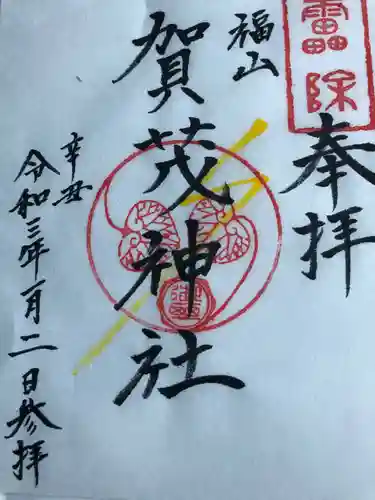 雷除
奉拝
福山
賀茂神社
辛丑
令和三年一月二日参拝